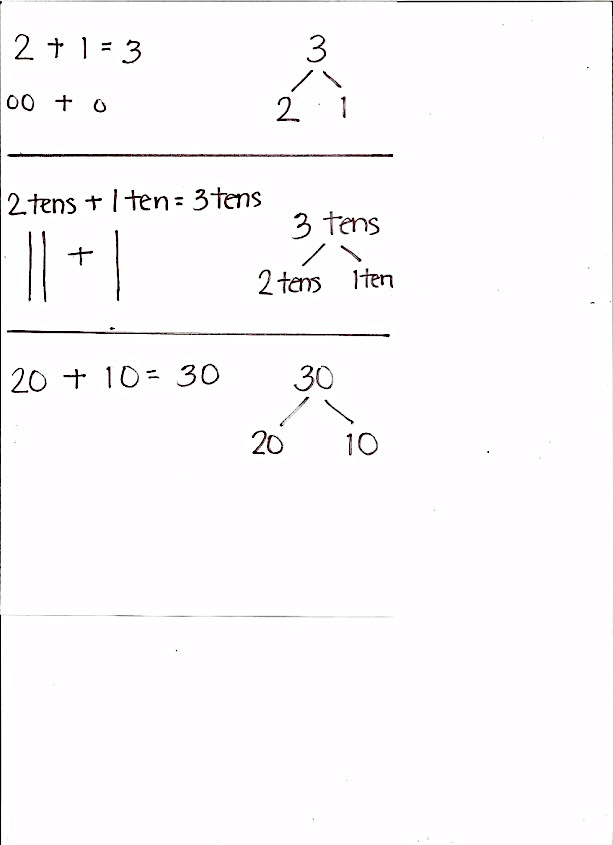 2 + 1 = 3
oo + o
3
2 1
2 tens + 1 ten = 3 tens
|| + |
3 tens
2 tens 1 ten
20 + 10 = 30
30
20 10